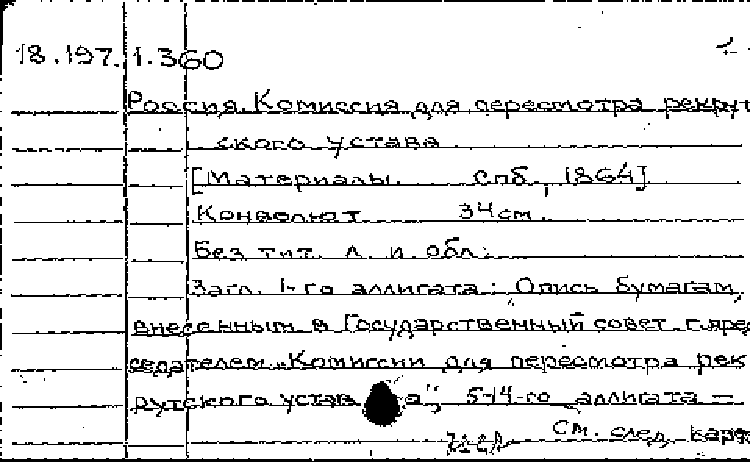 18.197.1.360
Россия. Комиссия для пересмотра рекрут
ского устава
[Материалы. Спб., 1864]
Конволют 34 см.
Без тит. л. и обл.
Загл. 1-го аллигата: „Опись бумагам,
внесенным в Государственный совет пред
седателем „Комиссии для пересмотра рек
рутского устава", 5-14-го аллигата –
См. след. карт